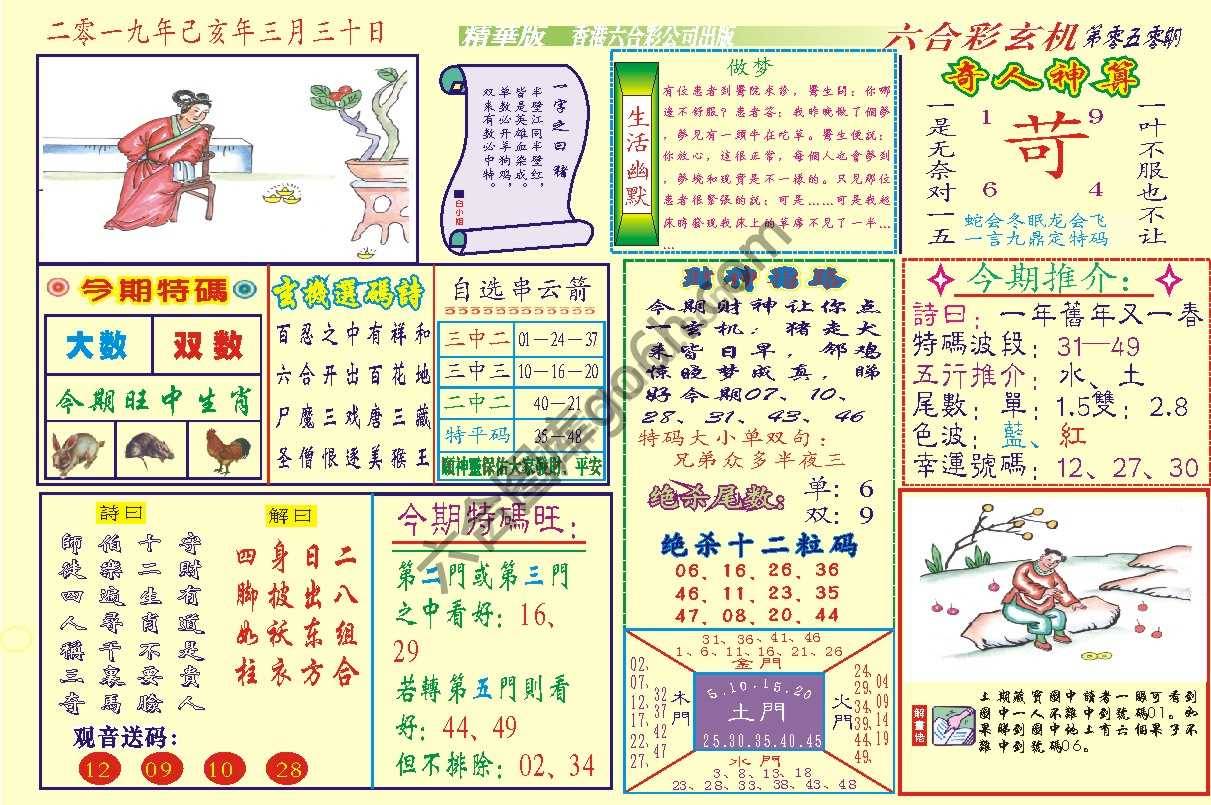 二零一九年己亥年三月三十日
精華版 香港六合彩公司出版
六合彩玄机 第零五零期
一字之曰豬
半壁江同半壁红，
皆是英雄血染成。
单数必开羊狗鸡，
双来有数必中特。
白小姐
生活幽默
做梦
有位患者到醫院求診，醫生問：你哪
邊不舒服？患者答：我昨晚做了個夢
，夢見有一頭牛在吃草。醫生便説：
你放心，這很正常，每個人也會夢到
，夢境和現實是不一樣的。只見那位
患者很緊張的説：可是……可是我起
床時發現我床上的草席不見了一半…
…
奇人神算
一是无奈对一五
1 9
苛
6 4
一叶不服也不让
蛇会冬眠龙会飞
一言九鼎定特码
今期特碼
大数 双数
今期旺中生肖
玄機選碼詩
百忍之中有祥和
六合开出百花地
尸魔三戏唐三藏
圣僧恨逐美猴王
自选串云箭
三中二 01—24—37
三中三 10—16—20
二中二 40—21
特平码 35—48
願神靈保佑大家發財、平安
财神指路
今期财神让你点
一玄机，猪走大
来皆日早，邻鸡
惊晓梦成真，睇
好今期07、10、
28、31、43、46
特码大小单双句：
兄弟众多半夜三
绝杀尾数：
单：6
双：9
绝杀十二粒码
06、16、26、36
46、11、23、35
47、08、20、44
今期推介：
詩曰：一年舊年又一春
特碼波段：31—49
五行推介：水、土
尾數：單：1.5雙：2.8
色波：藍、紅
幸運號碼：12、27、30
詩曰
守財有道是貴人
十二生肖不要臉
伯樂遍尋千裏馬
師徒四人稱三奇
解曰
二八组合
日出东方
身披袄衣
四脚如柱
观音送码：
12 09 10 28
今期特碼旺：
第二門或第三門
之中看好：16、
29
若轉第五門則看
好：44、49
但不排除：02、34
31、36、41、46
1、6、11、16、21、26
金門
02、07、12、17、22、27、
32、37、42、47
木門
5.10.15.20
土門
25.30.35.40.45
火門
24、29、34、39、44、49、
04、09、14、19
水門
3、8、13、18
23、28、33、38、43、48
解畫佬
上期藏寶圖中讀者一眼可看到
圖中一人不難中到號碼01。如
果睇到圖中地上有六個果子不
難中到號碼06。
六合图库go6h.com